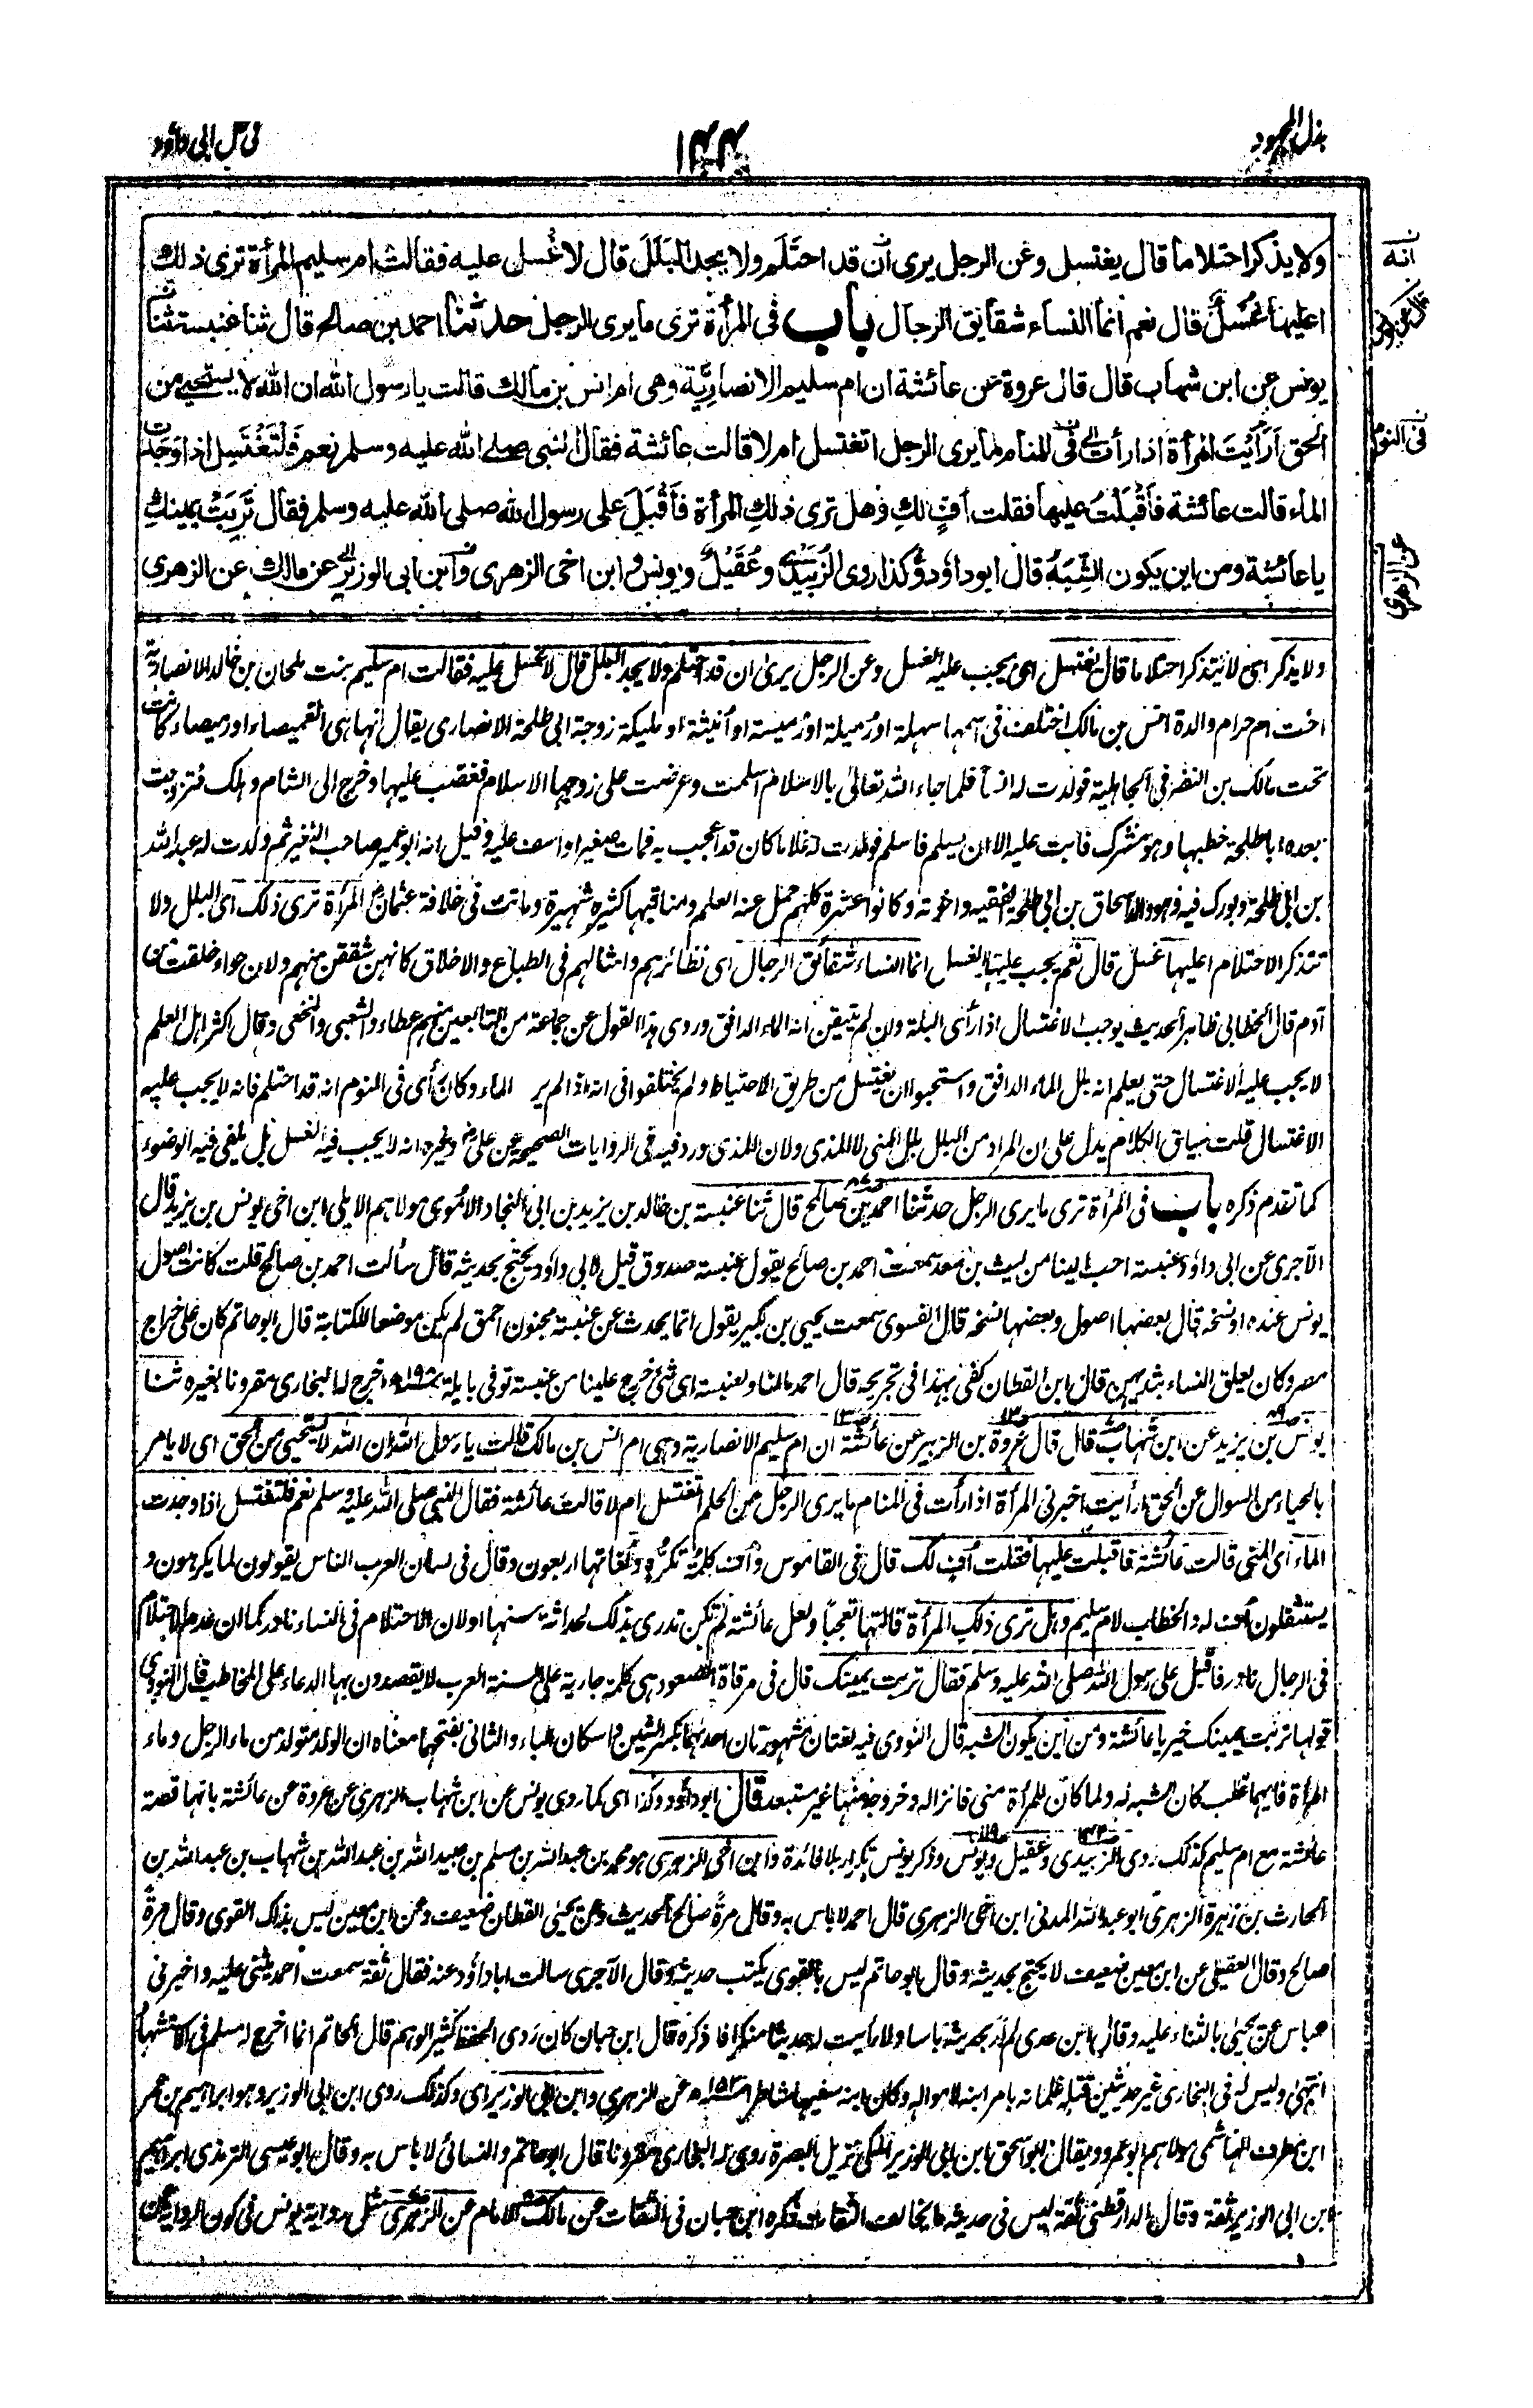 بذل المجهود
١٤٤
فى حل ابى داؤد
ولا يذكر احتلاما قال يغتسل وعن الرجل يرى أن قد احتَلَم ولا يجد البَلَلَ قال لا غُسل عليه فقالت ام سليم المرأة ترى ذلك
اعليها غُسلٌ قال نعم انما النساء شقائق الرجال باب فى المرأة ترى ما يرى الرجل حدثنا احمد بن صالح قال ثنا عنبسة ثنا
يونس عن ابن شهاب قال قال عروة عن عائشة ان ام سليم الانصاريّة وهى ام انس بن مالك قالت يا رسول الله ان الله لا يستحيى من
الحق اَرَاَيْتَ المرأة اذا رأت فى المنام ما يرى الرجل اتغتسل ام لا قالت عائشة فقال النبى صلى الله عليه وسلم نعم فَلْتَغْتَسِل اذا وَجَدَت
الماء قالت عائشة فاَقْبَلْتُ عليها فقلت اُفٍّ لكِ وهل ترى ذلكِ المرأة فاَقْبَلَ على رسول الله صلى الله عليه وسلم فقال تَرِبَتْ يمينكِ
يا عائشة ومن اين يكون الشِّبَهُ قال ابو داؤد وكذا روى الزُبيدى وعُقَيْلٌ ويونس وابن اخى الزهرى وابن ابى الوزير عن مالك عن الزهرى
انه
فى النوم
عن الزهرى
ولا يذكر اى لا يتذكر احتلاما قال يغتسل اى يجب عليه الغسل وعن الرجل يرى ان قد احتلم ولا يجد البلل قال لا غسل عليه فقالت ام سليم بنت ملحان بن خالد الانصارية
اخت ام حرام والدة انس بن مالك اختلف فى اسمها سهلة او رميلة او رميسة او انيثة او مليكة زوجة ابى طلحة الانصارى يقال انها هى الغميصاء او رميصاء كانت
تحت مالك بن النضر فى الجاهلية فولدت له انسا فلما جاء الله تعالى بالاسلام اسلمت وعرضت على زوجها الاسلام فغضب عليها وخرج الى الشام وهلك فتزوجت
بعده ابا طلحة خطبها وهو مشرك فابت عليه الا ان يسلم فاسلم فولدت له غلاما كان قد اعجب به فمات صغيرا واسف عليه وقيل انه ابو عمير صاحب النغير ثم ولدت له عبد الله
بن ابى طلحة وبورك فيه وهو والد اسحاق بن ابى طلحة الفقيه واخوته وكانوا عشرة كلهم حمل عنه العلم ومناقبها كثيرة شهيرة وماتت فى خلافة عثمان المرأة ترى ذلك اى البلل ولا
تتذكر الاحتلام اعليها غسل قال نعم يجب عليها الغسل انما النساء شقائق الرجال اى نظائرهم وامثالهم فى الطباع والاخلاق كانهن شققن منهم ولان حواء خلقت من
آدم قال الخطابى ظاهر الحديث يوجب الاغتسال اذا رأى البلة وان لم يتيقن انه الماء الدافق وروى هذا القول عن جماعة من التابعين منهم عطاء والشعبى والنخعى وقال اكثر اهل العلم
لا يجب عليه الاغتسال حتى يعلم انه بلل الماء الدافق واستحبوا ان يغتسل من طريق الاحتياط ولم يختلفوا فى انه اذا لم ير الماء وكان رأى فى النوم انه قد احتلم فانه لا يجب عليه
الاغتسال قلت سياق الكلام يدل على ان المراد من البلل بلل المنى لا المذى ولان المذى ورد فيه فى الروايات الصحيحة عن على وغيره انه لا يجب فيه الغسل بل يكفى فيه الوضوء
كما تقدم ذكره باب فى المرأة ترى ما يرى الرجل حدثنا احمد بن صالح قال ثنا عنبسة بن خالد بن يزيد بن ابى النجاد الاموى مولاهم الايلى ابن اخى يونس بن يزيد قال
الآجرى عن ابى داؤد عنبسة احب الينا من ليث بن سعد سمعت احمد بن صالح يقول عنبسة صدوق قيل لابى داؤد يحتج بحديثه قال سألت احمد بن صالح قلت كانت اصول
يونس عنده او نسخه فقال بعضها اصول وبعضها نسخه قال الفسوى سمعت يحيى بن بكير يقول انما يحدث عن عنبسة مجنون احمق لم يكن موضعا للكتابة قال ابو حاتم كان على خراج
مصر وكان يعلق النساء بثديهن قال ابن القطان كفى بهذا فى تجريحه قال احمد مالنا ولعنبسة اى شئ خرج علينا من عنبسة توفى بايلة ١٩٨ه اخرج له البخارى مقرونا بغيره ثنا
يونس بن يزيد عن ابن شهاب قال قال عروة بن الزبير عن عائشة ان ام سليم الانصارية وهى ام انس بن مالك قالت يا رسول الله ان الله لا يستحيى من الحق اى لا يامر
بالحياء من السوال عن الحق ارأيت اخبرنى المرأة اذا رأت فى المنام ما يرى الرجل من الحلم اتغتسل ام لا قالت عائشة فقال النبى صلى الله عليه وسلم نعم فلتغتسل اذا وجدت
الماء اى المنى قالت عائشة فاقبلت عليها فقلت اف لك قال فى القاموس واف كلمة تكره ولغاتها اربعون وقال فى لسان العرب الناس يقولون لما يكرهون و
يستثقلون اف له والخطاب لام سليم وهل ترى ذلك المرأة قالتها تعجبا ولعل عائشة لم تكن تدرى بذلك لحداثة سنها او لان الاحتلام فى النساء نادر كما ان عدم الاحتلام
فى الرجال نادر فاقبل على رسول الله صلى الله عليه وسلم فقال تربت يمينك قال فى مرقاة الصعود هى كلمة جارية على السنة العرب لا يقصدون بها الدعاء على المخاطب قال النووى
قولها تربت يمينك خير يا عائشة ومن اين يكون الشبه قال النووى فيه لغتان مشهورتان احدهما بكسر الشين واسكان الباء والثانى بفتحهما معناه ان الولد متولد من ماء الرجل وماء
المرأة فايهما غلب كان الشبه له ولما كان للمرأة منى فانزاله وخروجه منها غير مستبعد قال ابو داؤد وكذا اى كما روى يونس عن ابن شهاب الزهرى عن عروة عن عائشة بانها قصة
عائشة مع ام سليم كذلك روى الزبيدى وعقيل ويونس وذكر يونس تكرار بلا فائدة وابن اخى الزهرى هو محمد بن عبد الله بن مسلم بن عبيد الله بن عبد الله بن شهاب بن عبد الله بن
الحارث بن زهرة الزهرى ابو عبد الله المدنى ابن اخى الزهرى قال احمد لا باس به وقال مرة صالح الحديث وعن يحيى القطان ضعيف وعن ابن معين ليس بذاك القوى وقال مرة
صالح وقال العقيلى عن ابن معين ضعيف لا يحتج بحديثه وقال ابو حاتم ليس بالقوى يكتب حديثه وقال الآجرى سالت ابا داؤد عنه فقال ثقة سمعت احمد يثنى عليه واخبرنى
عباس عن يحيى بالثناء عليه وقال ابن عدى لم ار بحديثه باسا ولا رأيت له حديثا منكرا فاذكره قال ابن حبان كان ردى الحفظ كثير الوهم قال الحاكم انما اخرج له مسلم فى الاستشهاد
انتهى وليس له فى البخارى غير حديثين قتله غلمانه بامر ابنه لاموال له وكان ابنه سفيها شاطرا ١٥٢ه عن الزهرى وابن ابى الوزير اى وكذلك روى ابن ابى الوزير وهو ابراهيم بن عمر
ابن مطرف الهاشمى مولاهم ابو عمرو ويقال ابو اسحق ابن ابى الوزير المكى نزيل البصرة روى له البخارى مقرونا قال ابو حاتم والنسائى لا باس به وقال ابو عيسى الترمذى ابراهيم
ابن ابى الوزير ثقة وقال الدارقطنى ثقة ليس فى حديثه ما يخالف الثقات ذكره ابن حبان فى الثقات عن مالك الامام عن الزهرى مثل رواية يونس فى كون الرواية عن